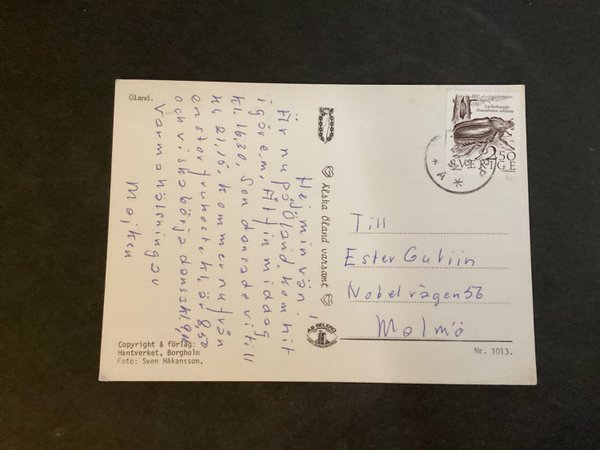 Öland.
Hej min vän!
Är nu på Öland, kom hit
igår e.m. Åt fin middag
kl. 16,30. Sen dansade vi till
kl. 21,15, kommer nu från
en stor frukost kl. är 8,50
och vi ska börja dansa kl. 9,
Varma hälsningar
Majken
Copyright & förlag:
Hantverket, Borgholm
Foto: Sven Håkansson.
Älska Öland varsamt
AB BELEGO
Läderbagge
Osmoderma eremita
2.50
SVERIGE
Till
Ester
Nobelvägen 56
Malmö
Nr. 1013.